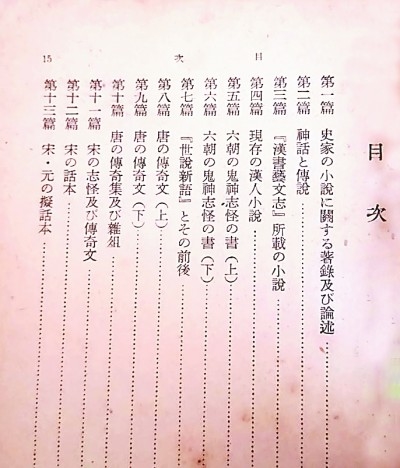 目次
第一篇 史家の小說に關する著錄及び論述
第二篇 神話と傳說
第三篇 『漢書藝文志』所載の小說
第四篇 現存の漢人小說
第五篇 六朝の鬼神志怪の書(上)
第六篇 六朝の鬼神志怪の書(下)
第七篇 『世說新語』とその前後
第八篇 唐の傳奇文(上)
第九篇 唐の傳奇文(下)
第十篇 唐の傳奇集及び雜俎
第十一篇 宋の志怪及び傳奇文
第十二篇 宋の話本
第十三篇 宋・元の擬話本
目次
15